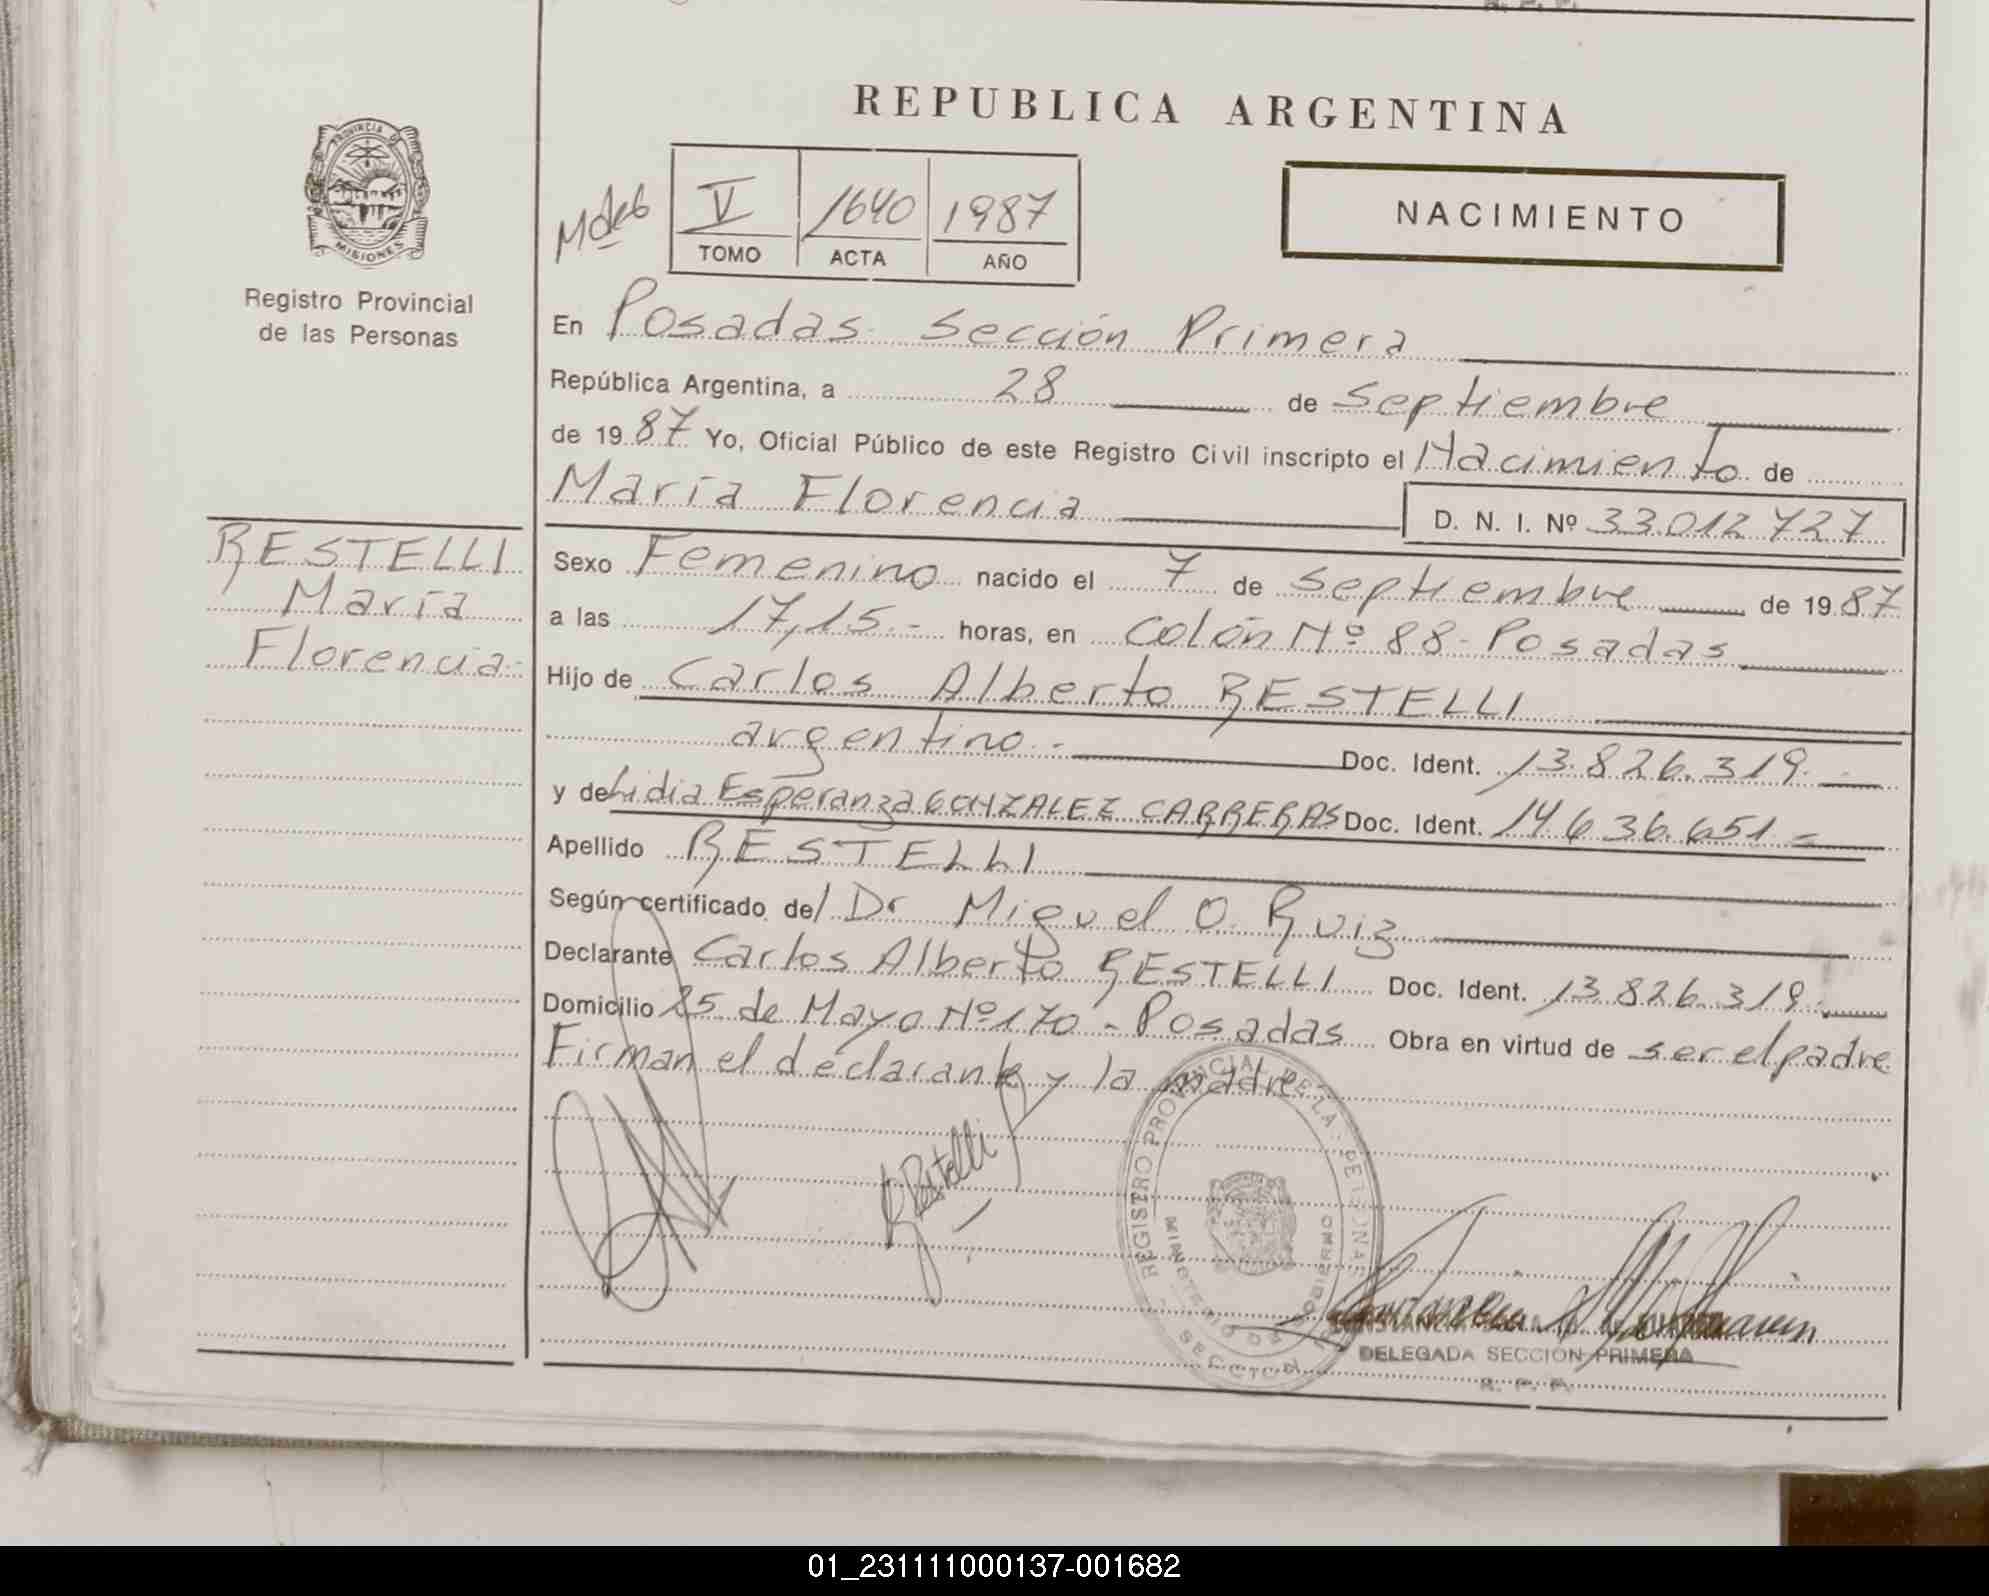 R. P. P.
REPUBLICA ARGENTINA
PROVINCIA DE MISIONES
Registro Provincial
de las Personas
V 1640 1987
TOMO ACTA AÑO
NACIMIENTO
En Posadas Sección Primera
República Argentina, a 28 de Septiembre
de 1987 Yo, Oficial Público de este Registro Civil inscripto el Nacimiento de
María Florencia D. N. I. Nº 33.012.727
RESTELLI
María
Florencia.-
Sexo Femenino nacido el 7 de Septiembre de 1987
a las 17,15.- horas, en Colón Nº 88-Posadas
Hijo de Carlos Alberto RESTELLI
argentino.- Doc. Ident. 13.826.319.-
y de Lidia Esperanza GONZALEZ CARRERAS Doc. Ident. 14.636.651.-
Apellido RESTELLI
Según certificado del Dr Miguel O. Ruiz
Declarante Carlos Alberto RESTELLI Doc. Ident. 13.826.319.-
Domicilio 25 de Mayo Nº 170 - Posadas Obra en virtud de ser el padre
Firman el declarante y la madre
Restelli
REGISTRO PROVINCIAL DE LA PERSONAS
MINISTERIO DE GOBIERNO
SECCION
DELEGADA SECCION PRIMERA
R. P. P.
01_231111000137-001682